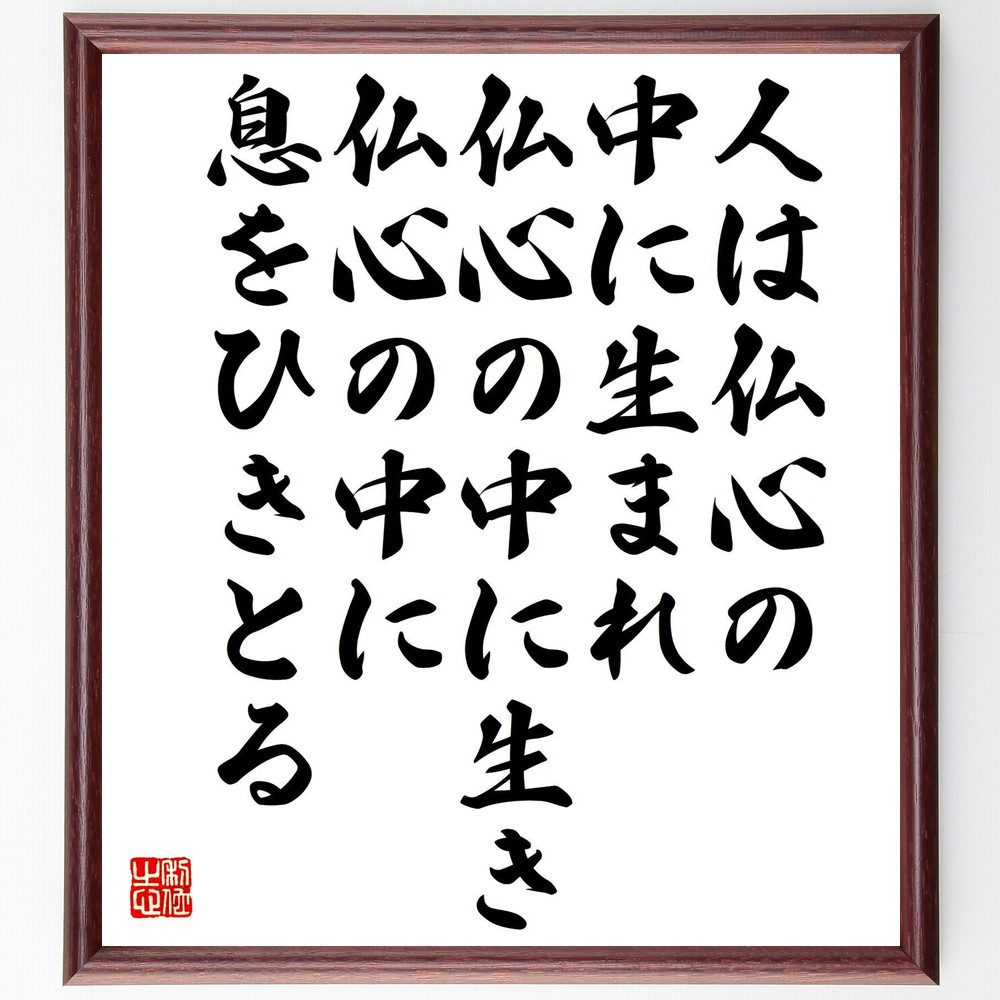 人は仏心の
中に生まれ
仏心の中に生き
仏心の中に
息をひきとる